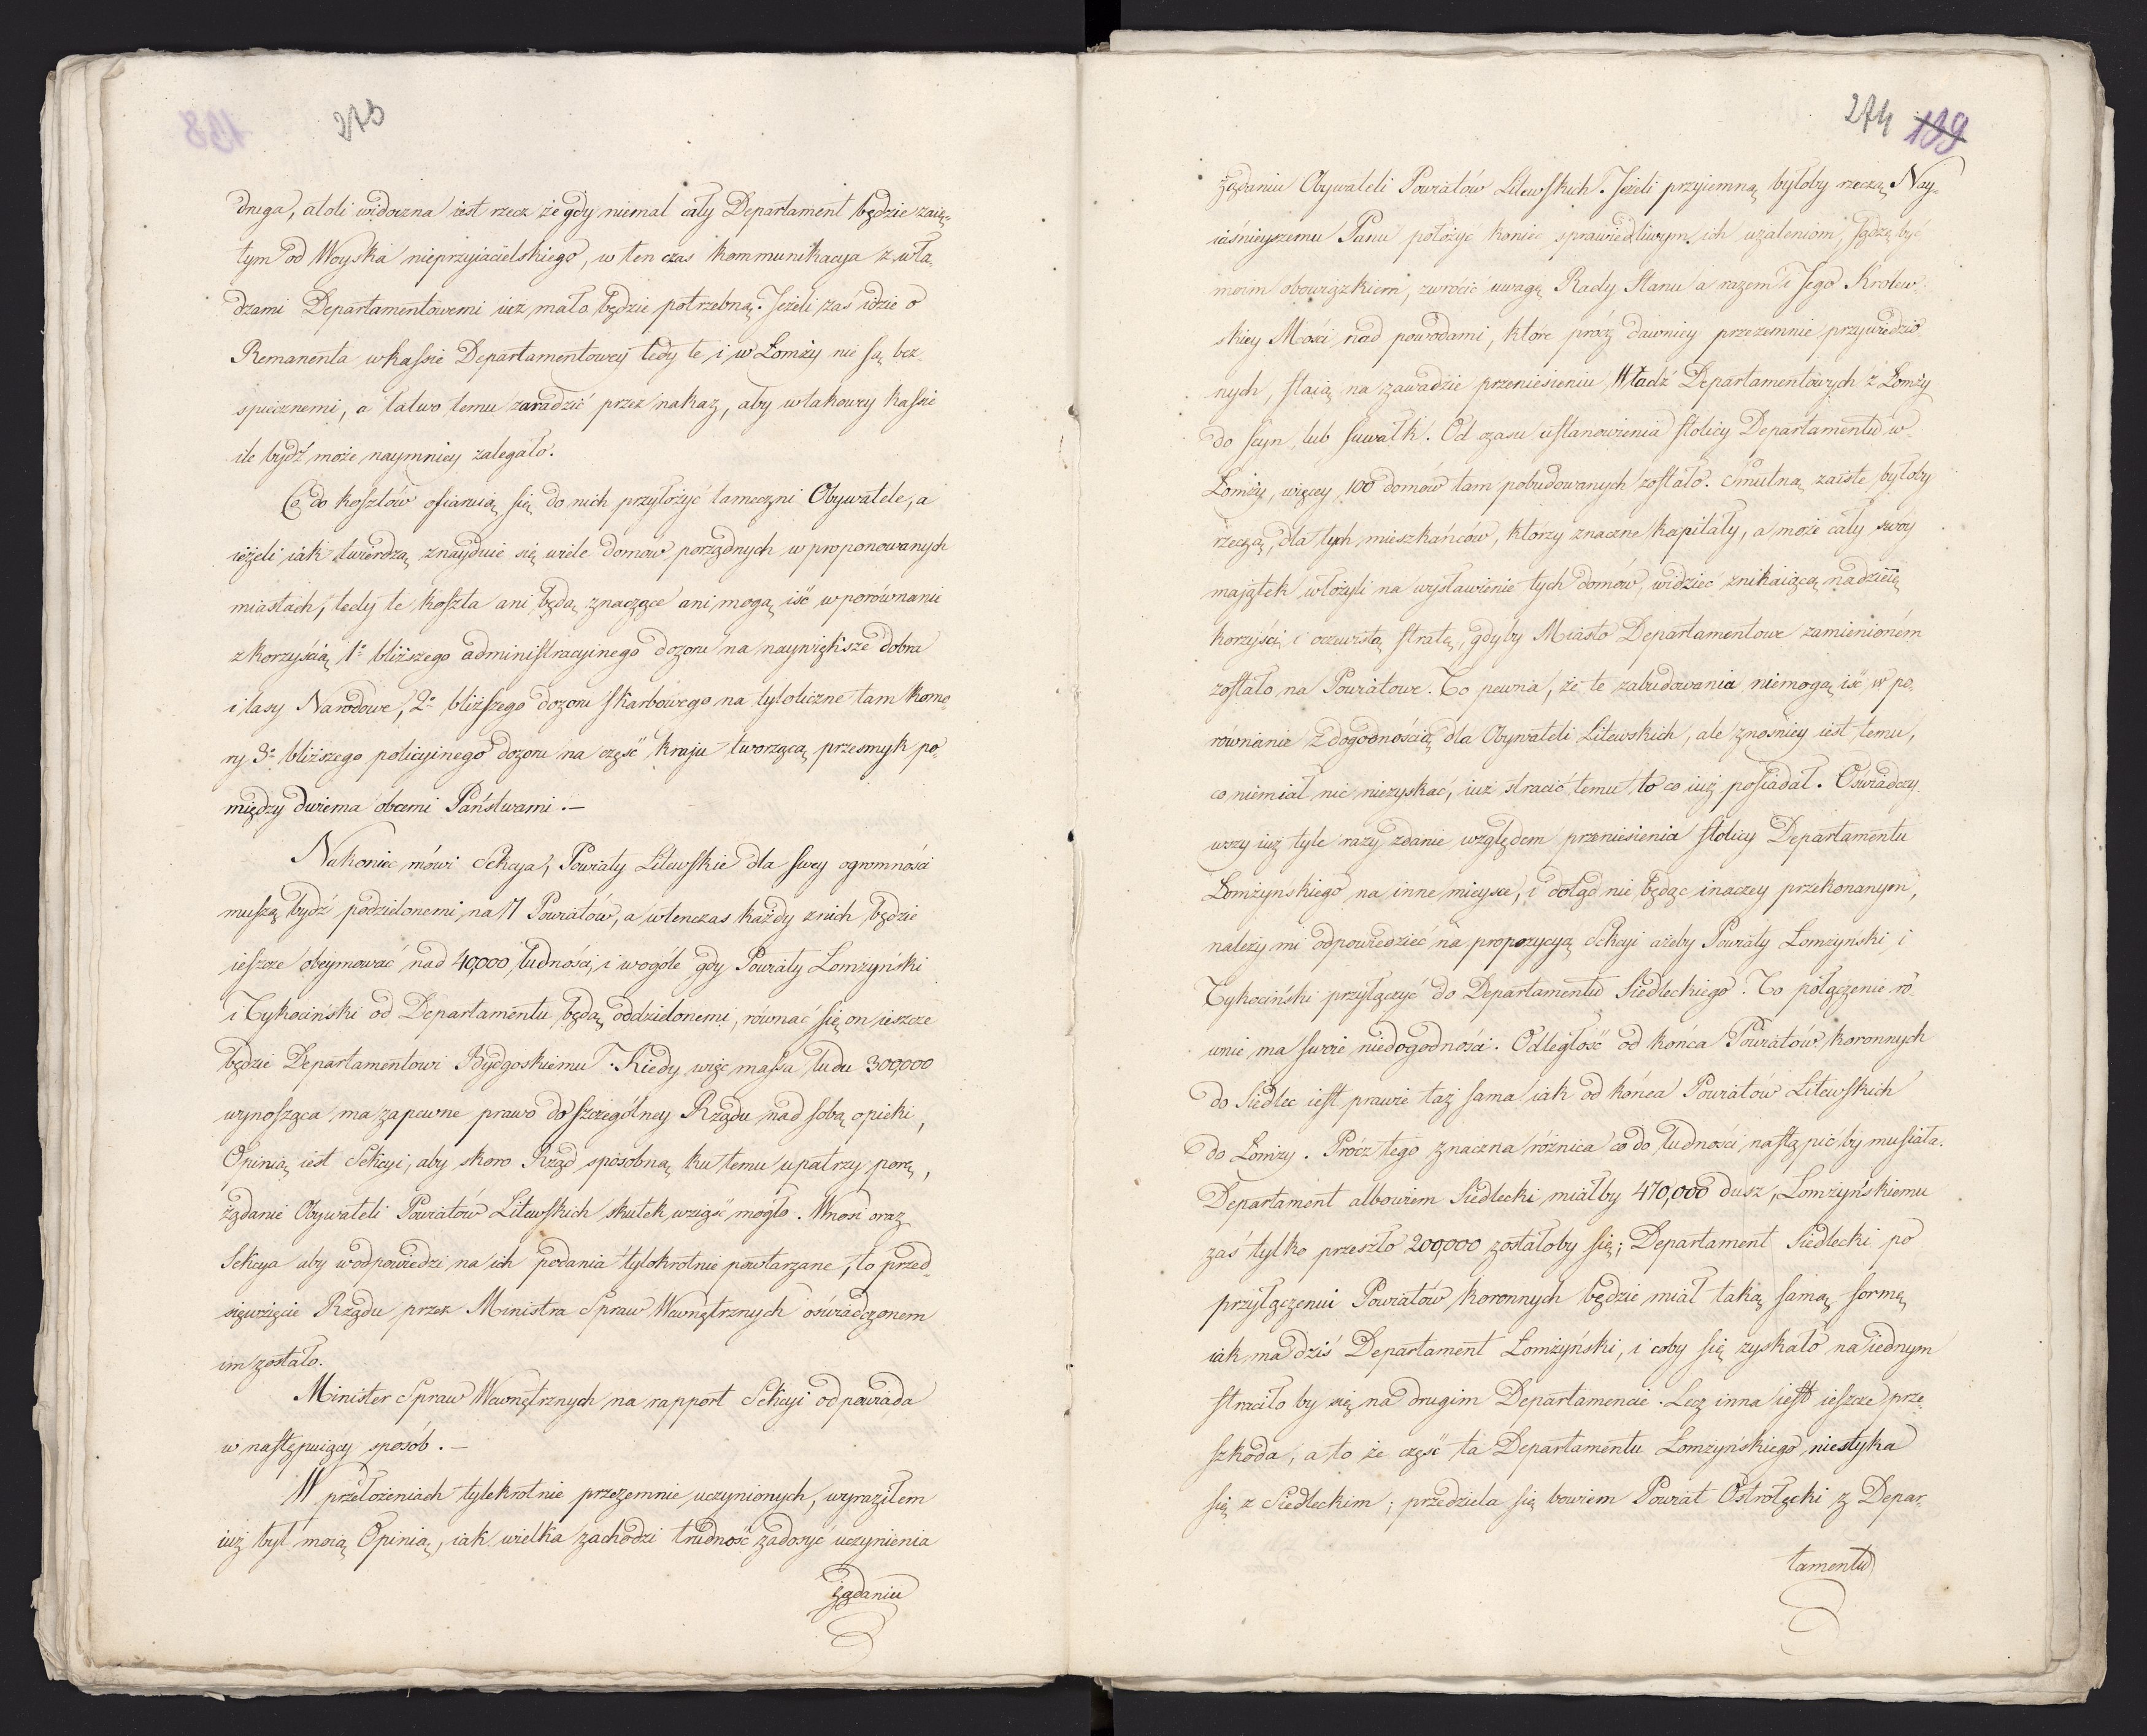 273
druga, atoli widoczna iest rzecz że gdy niemal cały Departament będzie zaię-
tym od Woyska nieprzyiacielskiego, w ten czas kommunikacya z wła-
dzami Departamentowemi iuż mało będzie potrzebną. Jeżeli zaś idzie o
Remanenta w kassie Departamentowey tedy te i w Łomży nie są bez-
spiecznemi, a łatwo temu zaradzić przez nakaz, aby w takowey kassie
ile bydź może naymniey zalegało.
Co do kosztów ofiaruią się do nich przyłożyć tameczni Obywatele, a
ieżeli iak twierdzą znayduie się wiele domow porządnych w proponowanych
miastach, tedy te koszta ani będą znaczące ani mogą iść w porównanie
z korzyścią 1o bliższego administracyinego dozoru na naywiększe dobra
i lasy Narodowe, 2o bliższego dozoru skarbowego na tyloliczne tam komo-
ry 3o bliższego policyinego dozoru na część kraju tworzącą przesmyk po-
między dwiema obcemi Państwami. —
Nakoniec mówi Sekcya, Powiaty Litewskie dla swey ogromności
muszą bydź podzielonemi na 7 Powiatów, a wtenczas każdy z nich będzie
ieszcze obeymować nad 40,000 ludności, i wogóle gdy Powiaty Łomżyński
i Tykociński od Departamentu będą oddzielonemi, równać się on ieszcze
będzie Departamentowi Bydgoskiemu. Kiedy więc massa ludu 300,000
wynosząca ma zapewne prawo do szczególney Rządu nad sobą opieki,
Opinią iest Sekcyi, aby skoro Rząd sposobną ku temu upatrzy porę,
żądanie Obywateli Powiatów Litewskich skutek wziąść mogło. Wnosi oraz
Sekcya aby w odpowiedzi na ich podania tylokrotnie powtarzane, to przed-
sięwzięcie Rządu przez Ministra Spraw Wewnętrznych oświadczonem
im zostało.
Minister Spraw Wewnętrznych na rapport Sekcyi odpowiada
w następuiący sposób. —
W przełożeniach tylekrotnie przezemnie uczynionych, wyraziłem
iuż był moią Opinią, iak wielka zachodzi trudność zadosyć uczynienia
żądaniu
274 139
żądaniu Obywateli Powiatów Litewskich. Jeżeli przyiemną byłoby rzeczą Nay-
iaśnieyszemu Panu położyć koniec sprawiedliwym ich użaleniom, sądzę być
moim obowiązkiem, zwrócić uwagę Rady Stanu a razem i Jego Królew-
skiey Mości nad powodami, które prócz dawniey przezemnie przywiedzio-
nych, staią na zawadzie przeniesieniu Władz Departamentowych z Łomży
do Seyn lub Suwałk. Od czasu ustanowienia stolicy Departamentu w
Łomży, więcey 100 domów tam pobudowanych zostało. Smutną zaiste byłoby
rzeczą, dla tych mieszkańców, którzy znaczne kapitały, a może cały swóy
majątek włożyli na wystawienie tych domów, widzieć znikaiącą nadzieię
korzyści, i oczewistą stratę, gdyby Miasto Departamentowe zamienioném
zostało na Powiatowe. To pewna, że te zabudowania niemogą iść w po-
równanie z dogodnością dla Obywateli Litewskich, ale znośniey iest temu,
co niemiał nic niezyskać, iuż stracić temu to co iuż posiadał. Oświadczy-
wszy iuż tyle razy zdanie względem przeniesienia stolicy Departamentu
Łomżynskiego na inne mieysce, i dotąd nie będąc inaczey przekonanym,
należy mi odpowiedzieć na propozycyą Sekcyi ażeby Powiaty Łomżyński, i
Tykociński przyłączyć do Departamentu Siedleckiego. To połączenie ró-
wnie ma swoie niedogodności. Odległość od końca Powiatów koronnych
do Siedlec iest prawie taż sama iak od końca Powiatów Litewskich
do Łomży. Prócz tego znaczna różnica co do ludności nastąpić by musiała.
Departament albowiem Siedlecki miałby 470,000 dusz, Łomżyńskiemu
zaś tylko przeszło 200,000 zostałoby się; Departament Siedlecki po
przyłączeniu Powiatów koronnych będzie miał taką samą formę
iak ma dziś Departament Łomżyński, i coby się zyskało na iednym
straciło by się na drugim Departamencie. Lecz inna iest ieszcze prze-
szkoda, a to że część ta Departamentu Łomżyńskiego niestyka
się z Siedleckim; przedziela się bowiem Powiat Ostrołęcki z Depar-
tamentu